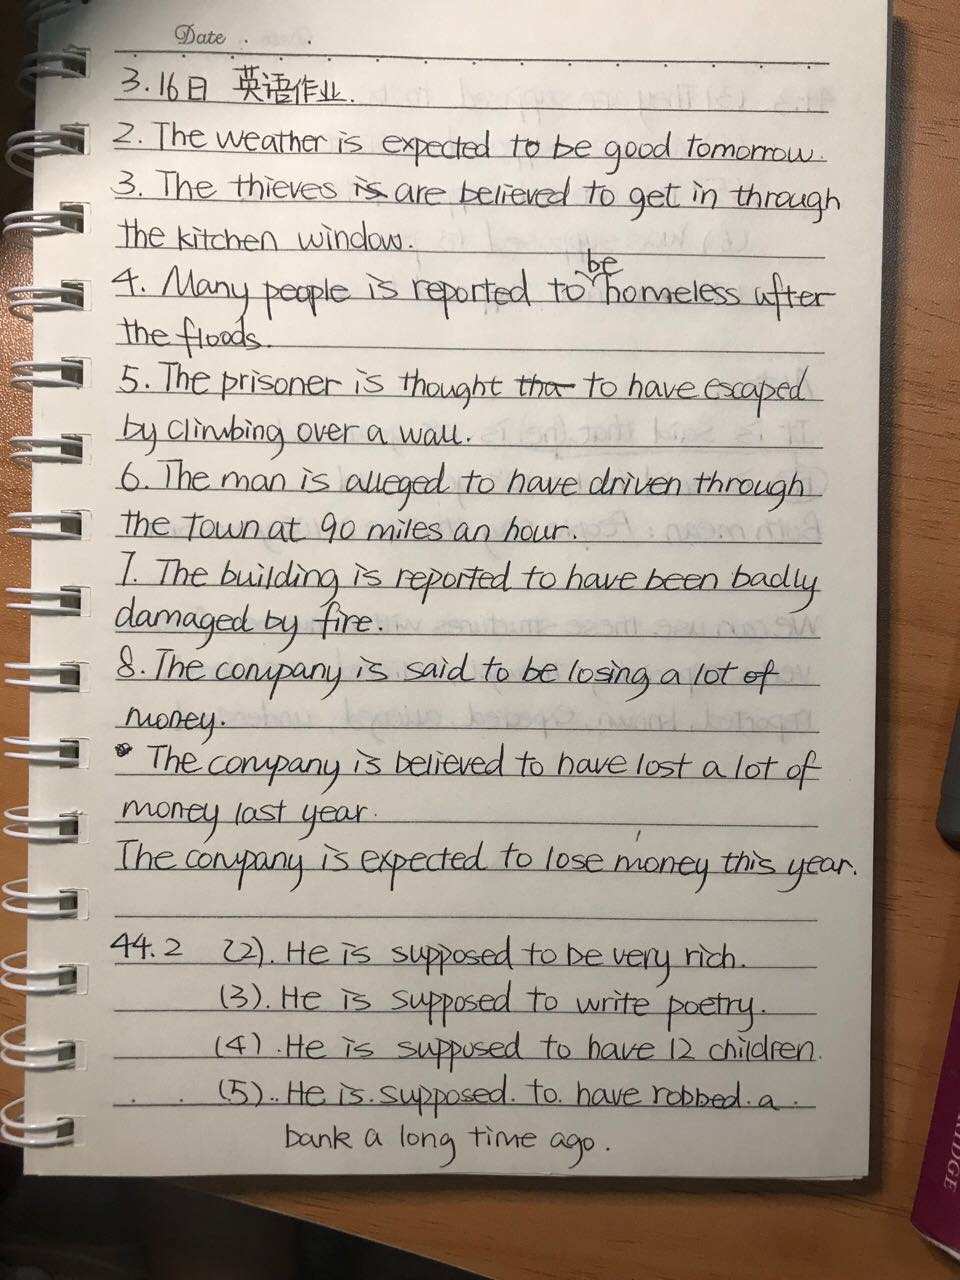 Date
3.16日 英语作业.
2. The weather is expected to be good tomorrow.
3. The thieves is are believed to get in through
the kitchen window.
4. Many people is reported to be homeless after
the floods.
5. The prisoner is thought tha to have escaped
by climbing over a wall.
6. The man is alleged to have driven through
the town at 90 miles an hour.
7. The building is reported to have been badly
damaged by fire.
8. The company is said to be losing a lot of
money.
The company is believed to have lost a lot of
money last year.
The company is expected to lose money this year.
44.2 (2). He is supposed to be very rich.
(3). He is supposed to write poetry.
(4). He is supposed to have 12 children.
(5). He is supposed to have robbed a
bank a long time ago.